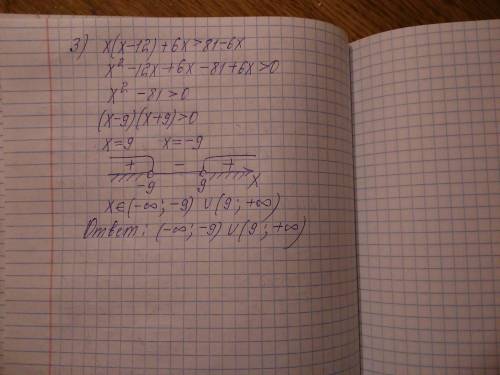 3) x(x-12)+6x>81-6x
x²-12x+6x-81+6x>0
x²-81>0
(x-9)(x+9)>0
x=9 x=-9
+ - +
-9 9 x
x∈(-∞;-9)∪(9;+∞)
Ответ: (-∞;-9)∪(9;+∞)